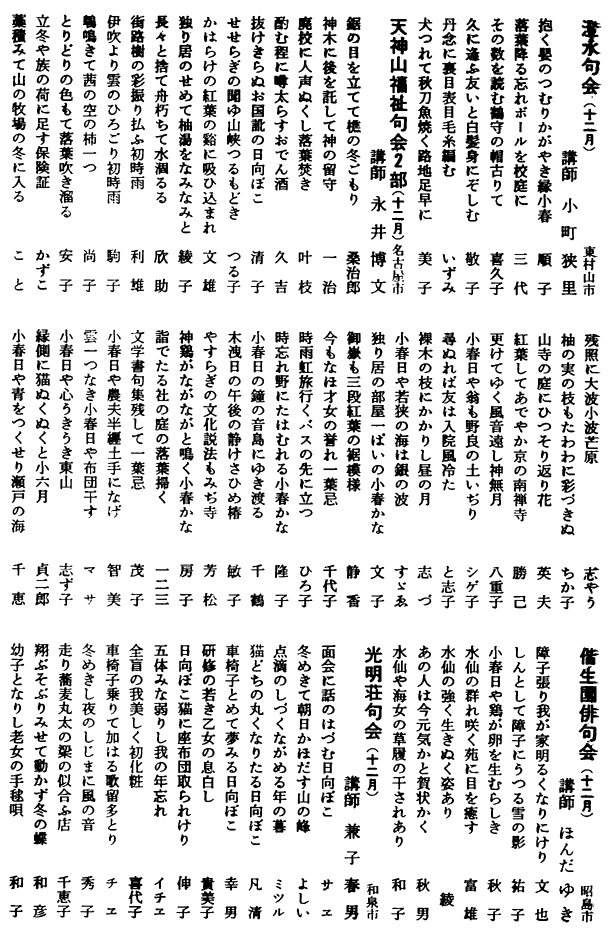 澄水句会(十二月) 東村山市
講師 小町狭里
抱く嬰のつむりかがやき縁小春 順子
落葉降る忘れボールを校庭に 三代
その数を読む鶴守の帽古りて 喜久子
久に逢ふ友いと白髪身にぞしむ 敬子
丹念に裏目表目毛糸編む いずみ
犬つれて秋刀魚焼く路地足早に 美子
天神山福祉句会2部(十二月) 名古屋市
講師 永井博文
鋸の目を立てて樵の冬ごもり 桑治郎
神木に後を託して神の留守 一治
廃校に人声ぬくし落葉焚き 叶枝
酌む程に噂太らすおでん酒 久吉
抜けきらぬお国訛の日向ぼこ 清子
せせらぎの聞ゆ山峡つるもどき つる子
かはらけの紅葉の谿に吸ひ込まれ 文雄
独り居のせめて柚湯をなみなみと 綾子
長々と捨て舟朽ちて水涸るる 欣助
街路樹の彩振り払ふ初時雨 利雄
伊吹より雲のひろごり初時雨 駒子
鵯鳴きて茜の空の柿一つ 尚子
とりどりの色もて落葉吹き溜る 安子
立冬や族の荷に足す保険証 かずこ
藁積みて山の牧場の冬に入る こと
残照に大波小波芒原 志やう
柚の実の枝もたわわに彩づきぬ ちか子
山寺の庭にひつそり返り花 英夫
紅葉してあでやか京の南禅寺 勝己
更けてゆく風音遠し神無月 八重子
小春日や翁も野良の土いぢり シゲ子
尋ぬれば友は入院風冷た と志子
裸木の枝にかかりし昼の月 志づ
小春日や若狭の海は銀の波 すゞゑ
独り居の部屋一ぱいの小春かな 文子
御嶽も三段紅葉の裾模様 静香
今もなほ才女の誉れ一葉忌 千代子
時雨虹旅行くバスの先に立つ ひろ子
時忘れ野にたはむれる小春かな 隆子
小春日の鐘の音島にゆき渡る 千鶴
木洩日の午後の静けさひめ椿 敏子
やすらぎの文化説法もみぢ寺 芳松
神鶏がながながと鳴く小春かな 房子
詣でたる社の庭の落葉掃く 一二三
文学書句集残して一葉忌 茂子
小春日や農夫半纏土手になげ 智美
雲一つなき小春日や布団干す マサ
小春日や心うきうき東山 志ず子
縁側に猫ぬくぬくと小六月 貞二郎
小春日や青をつくせり瀬戸の海 千恵
偕生園俳句会(十二月) 昭島市
講師 ほんだゆき
障子張り我が家明るくなりにけり 文也
しんとして障子にうつる雪の影 祐子
小春日や鶏が卵を生むらしき 秋子
水仙の群れ咲く苑に目を癒す 富雄
水仙の強く生きぬく姿あり 綾
あの人は今元気かと賀状かく 秋男
水仙や海女の草履の干されあり 和子
光明荘句会(十二月) 和泉市
講師 兼子
面会に話のはづむ日向ぼこ 春男
冬めきて朝日かほだす山の峰 サヱ
点滴のしづくながめる年の暮 よしい
猫どちの丸くなりたる日向ぼこ ミツル
車椅子とめて夢みる日向ぼこ 凡清
研修の若き乙女の息白し 幸男
日向ぼこ猫に座布団取られけり 貴美子
五体みな弱りし我の年忘れ 伸子
全盲の我美しく初化粧 イチヱ
車椅子乗りて加はる歌留多とり 喜代子
冬めきし夜のしじまに風の音 チヱ
走り蕎麦丸太の梁の似合ふ店 秀子
翔ぶそぶりみせて動かず冬の蝶 千恵子
幼子となりし老女の手毬唄 和彦
和子